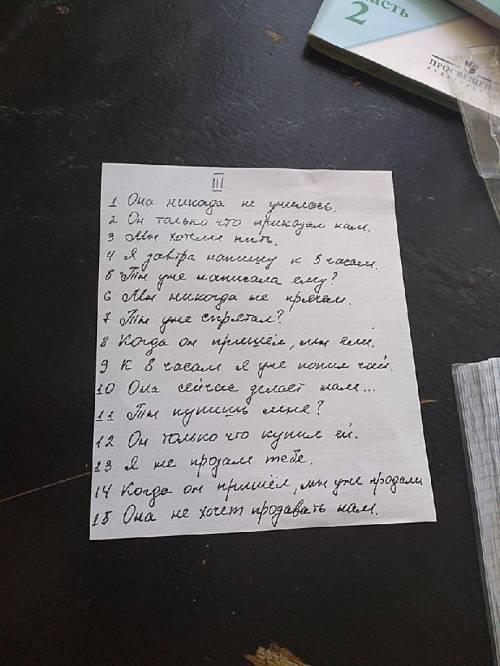 часть
2
ПРОСВЕЩЕНИЕ
III
1 Она никогда не училась.
2 Он только что приказал нам.
3 Мы хотели пить.
4 Я завтра напишу к 5 часам.
5 Ты уже написала ему?
6 Мы никогда не прячем.
7 Ты уже спрятал?
8 Когда он пришёл, мы ели.
9 К 8 часам я уже попил чай.
10 Она сейчас делает нам...
11 Ты купишь мне?
12 Он только что купил ей.
13 Я не продам тебе.
14 Когда он пришёл, мы уже продали
15 Она не хочет продавать нам.